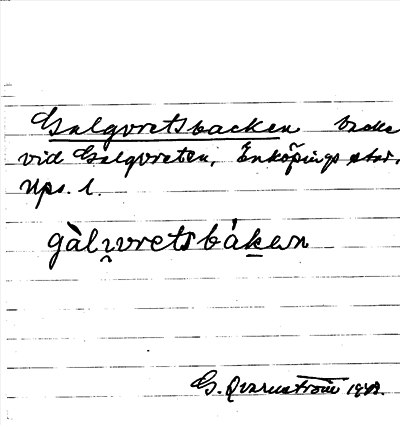 Galgvretsbacken backe
vid Galgvreten, Enköpings stad,
Ups. l.
gàli̯vretsbáken
G. Qvarnström